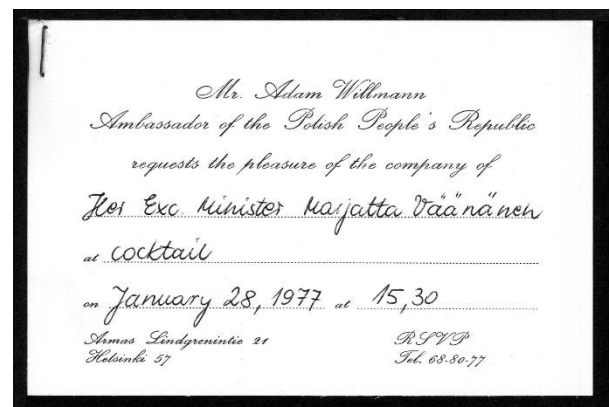 Mr. Adam Willmann
Ambassador of the Polish People's Republic
requests the pleasure of the company of
Her Exc. Minister Marjatta Väänänen
at cocktail
on January 28, 1977 at 15,30
Armas Lindgrenintie 21 RSVP
Helsinki 57 Tel. 68-80-77